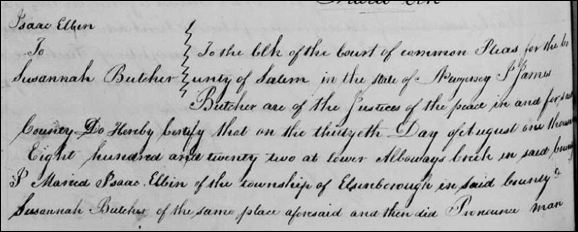 Isaac Elbin
To
Susannah Butcher
To the Clk of the Court of common Pleas for the Co
unty of Salem in the State of Nugursey I James
Butcher are of the Justices of the peace in and for said
County Do Hereby Certify that on the thirtyeth Day of August one thous
Eight hundred and twenty two at lower Alloways Creek in said County
I Maried Isaac Elbin of the township of Elsenborough in said County &
Susannah Butcher of the same place aforesaid and then did Pronounce man